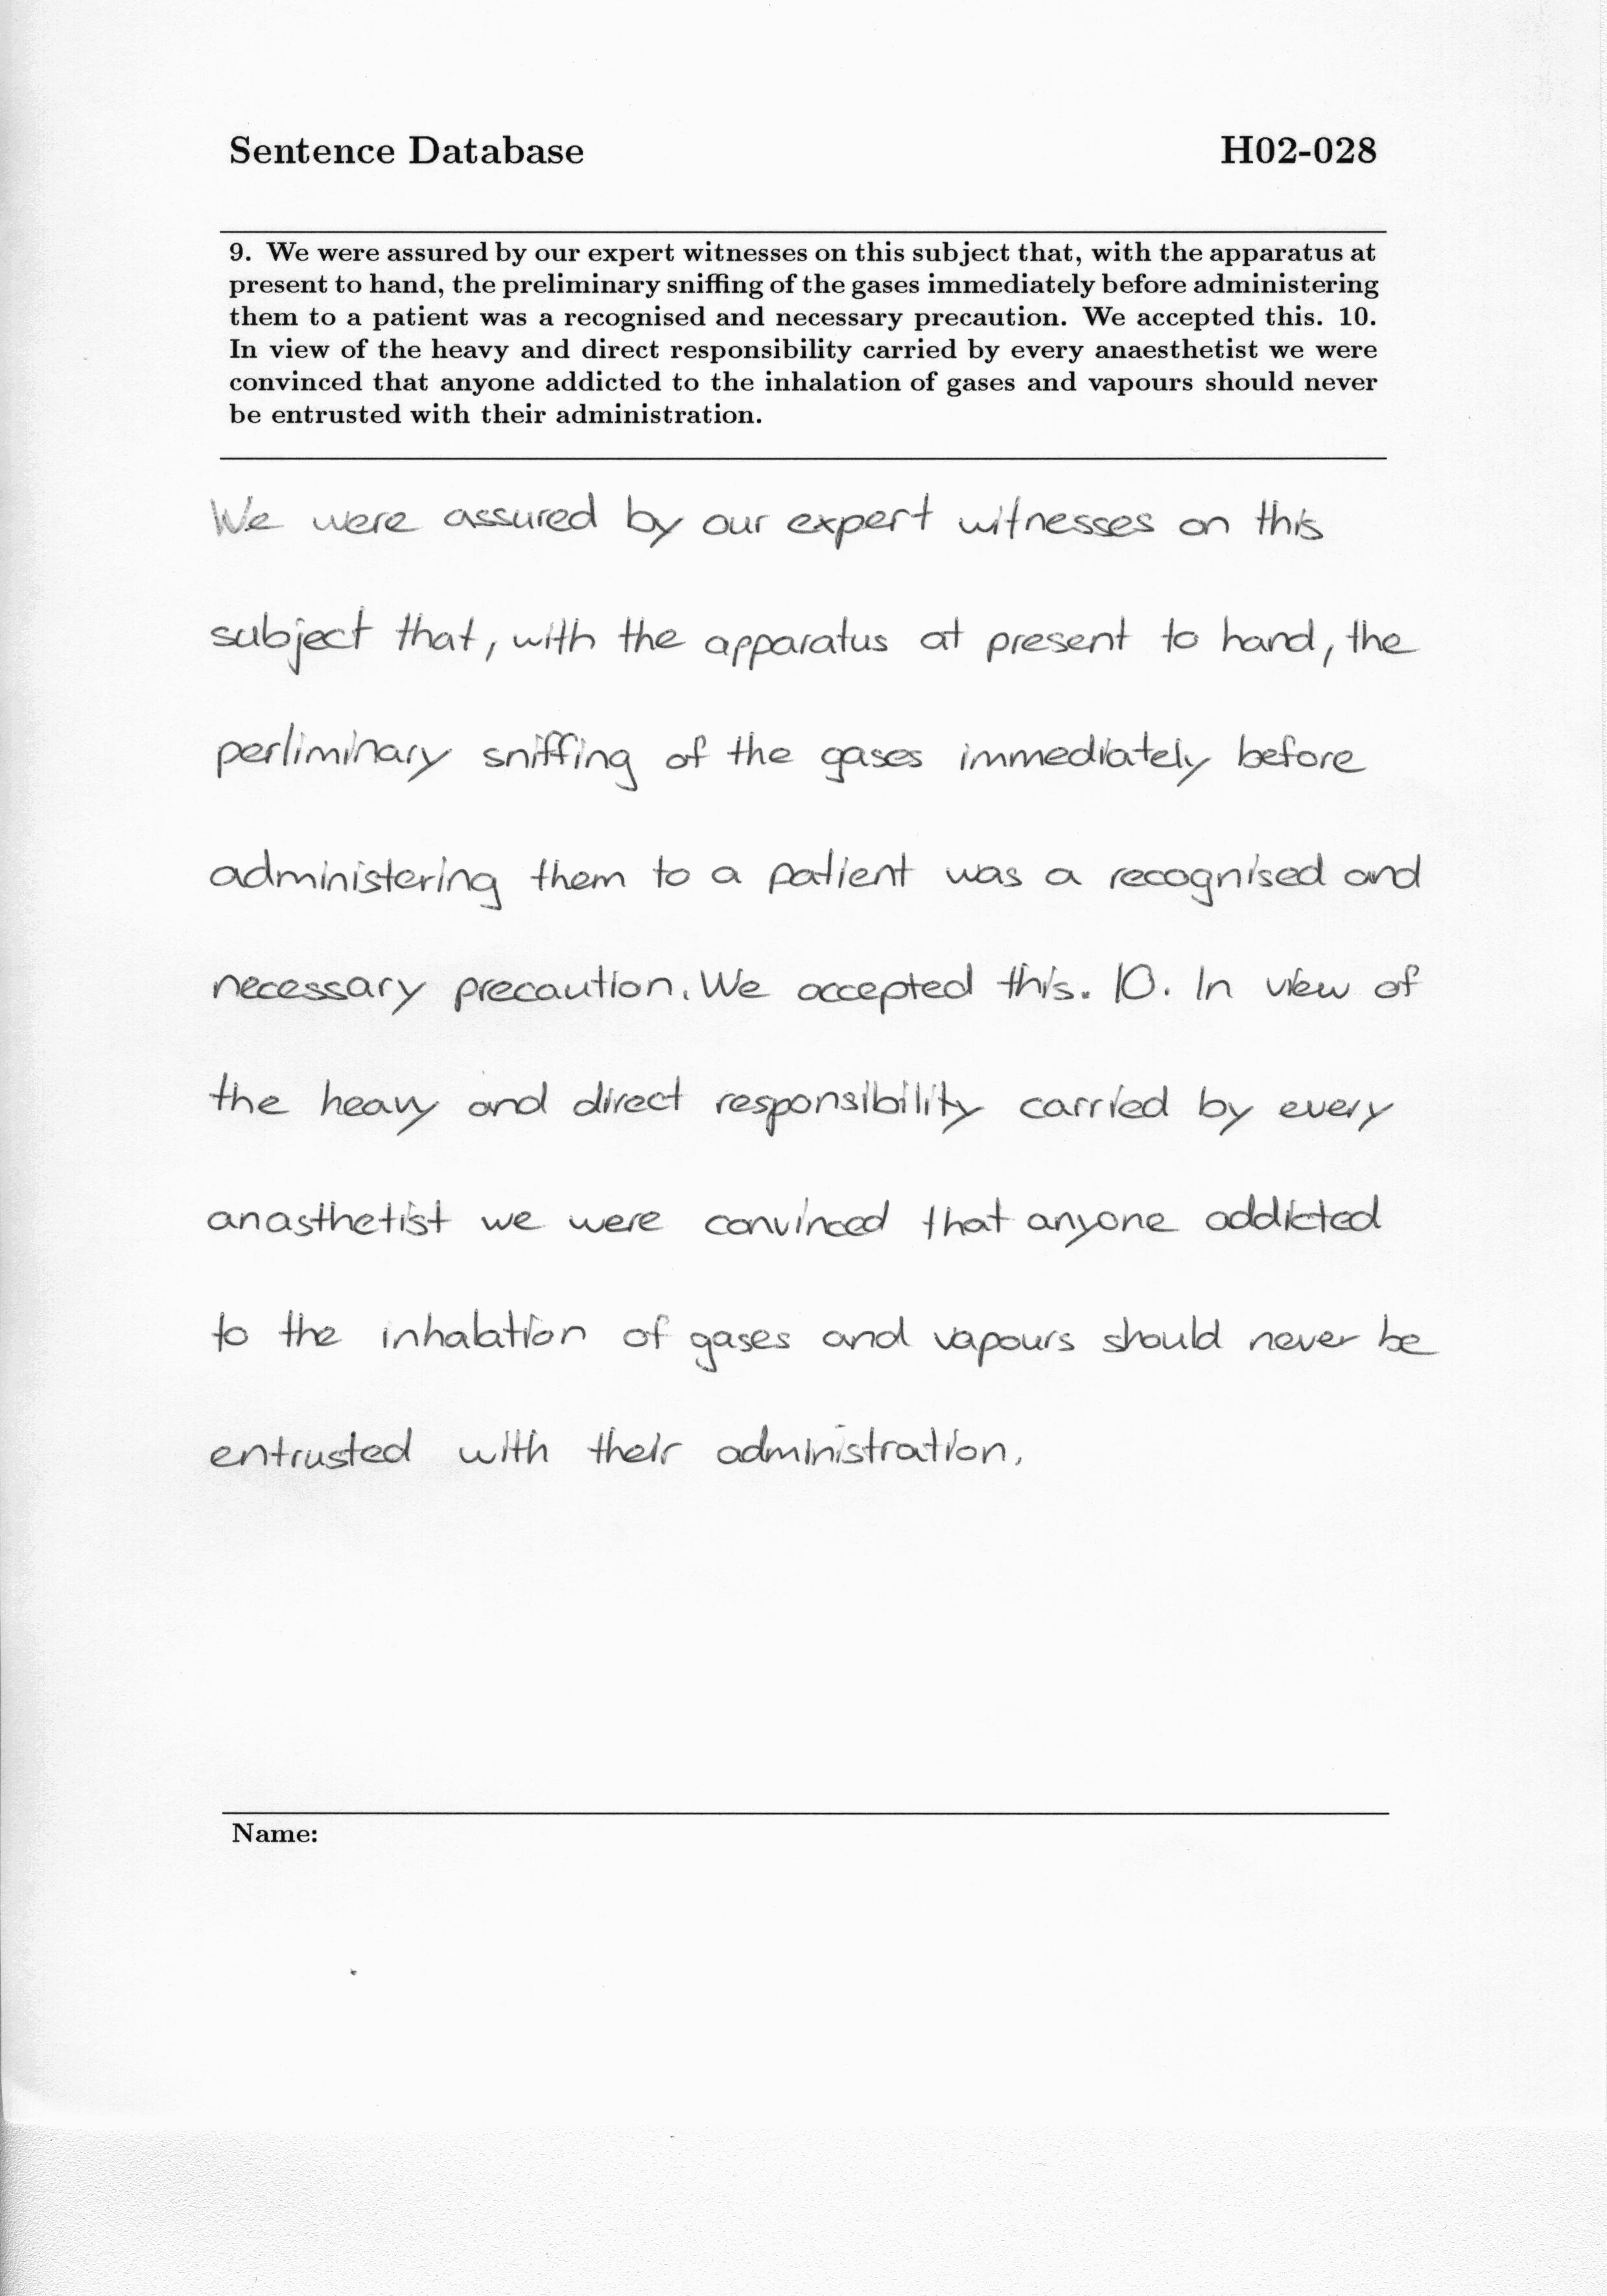 Sentence Database H02-028
9. We were assured by our expert witnesses on this subject that, with the apparatus at
present to hand, the preliminary sniffing of the gases immediately before administering
them to a patient was a recognised and necessary precaution. We accepted this. 10.
In view of the heavy and direct responsibility carried by every anaesthetist we were
convinced that anyone addicted to the inhalation of gases and vapours should never
be entrusted with their administration.
We were assured by our expert witnesses on this
subject that, with the apparatus at present to hand, the
perliminary sniffing of the gases immediately before
administering them to a patient was a recognised and
necessary precaution. We accepted this. 10. In view of
the heavy and direct responsibility carried by every
anasthetist we were convinced that anyone addicted
to the inhalation of gases and vapours should never be
entrusted with their administration.
Name: